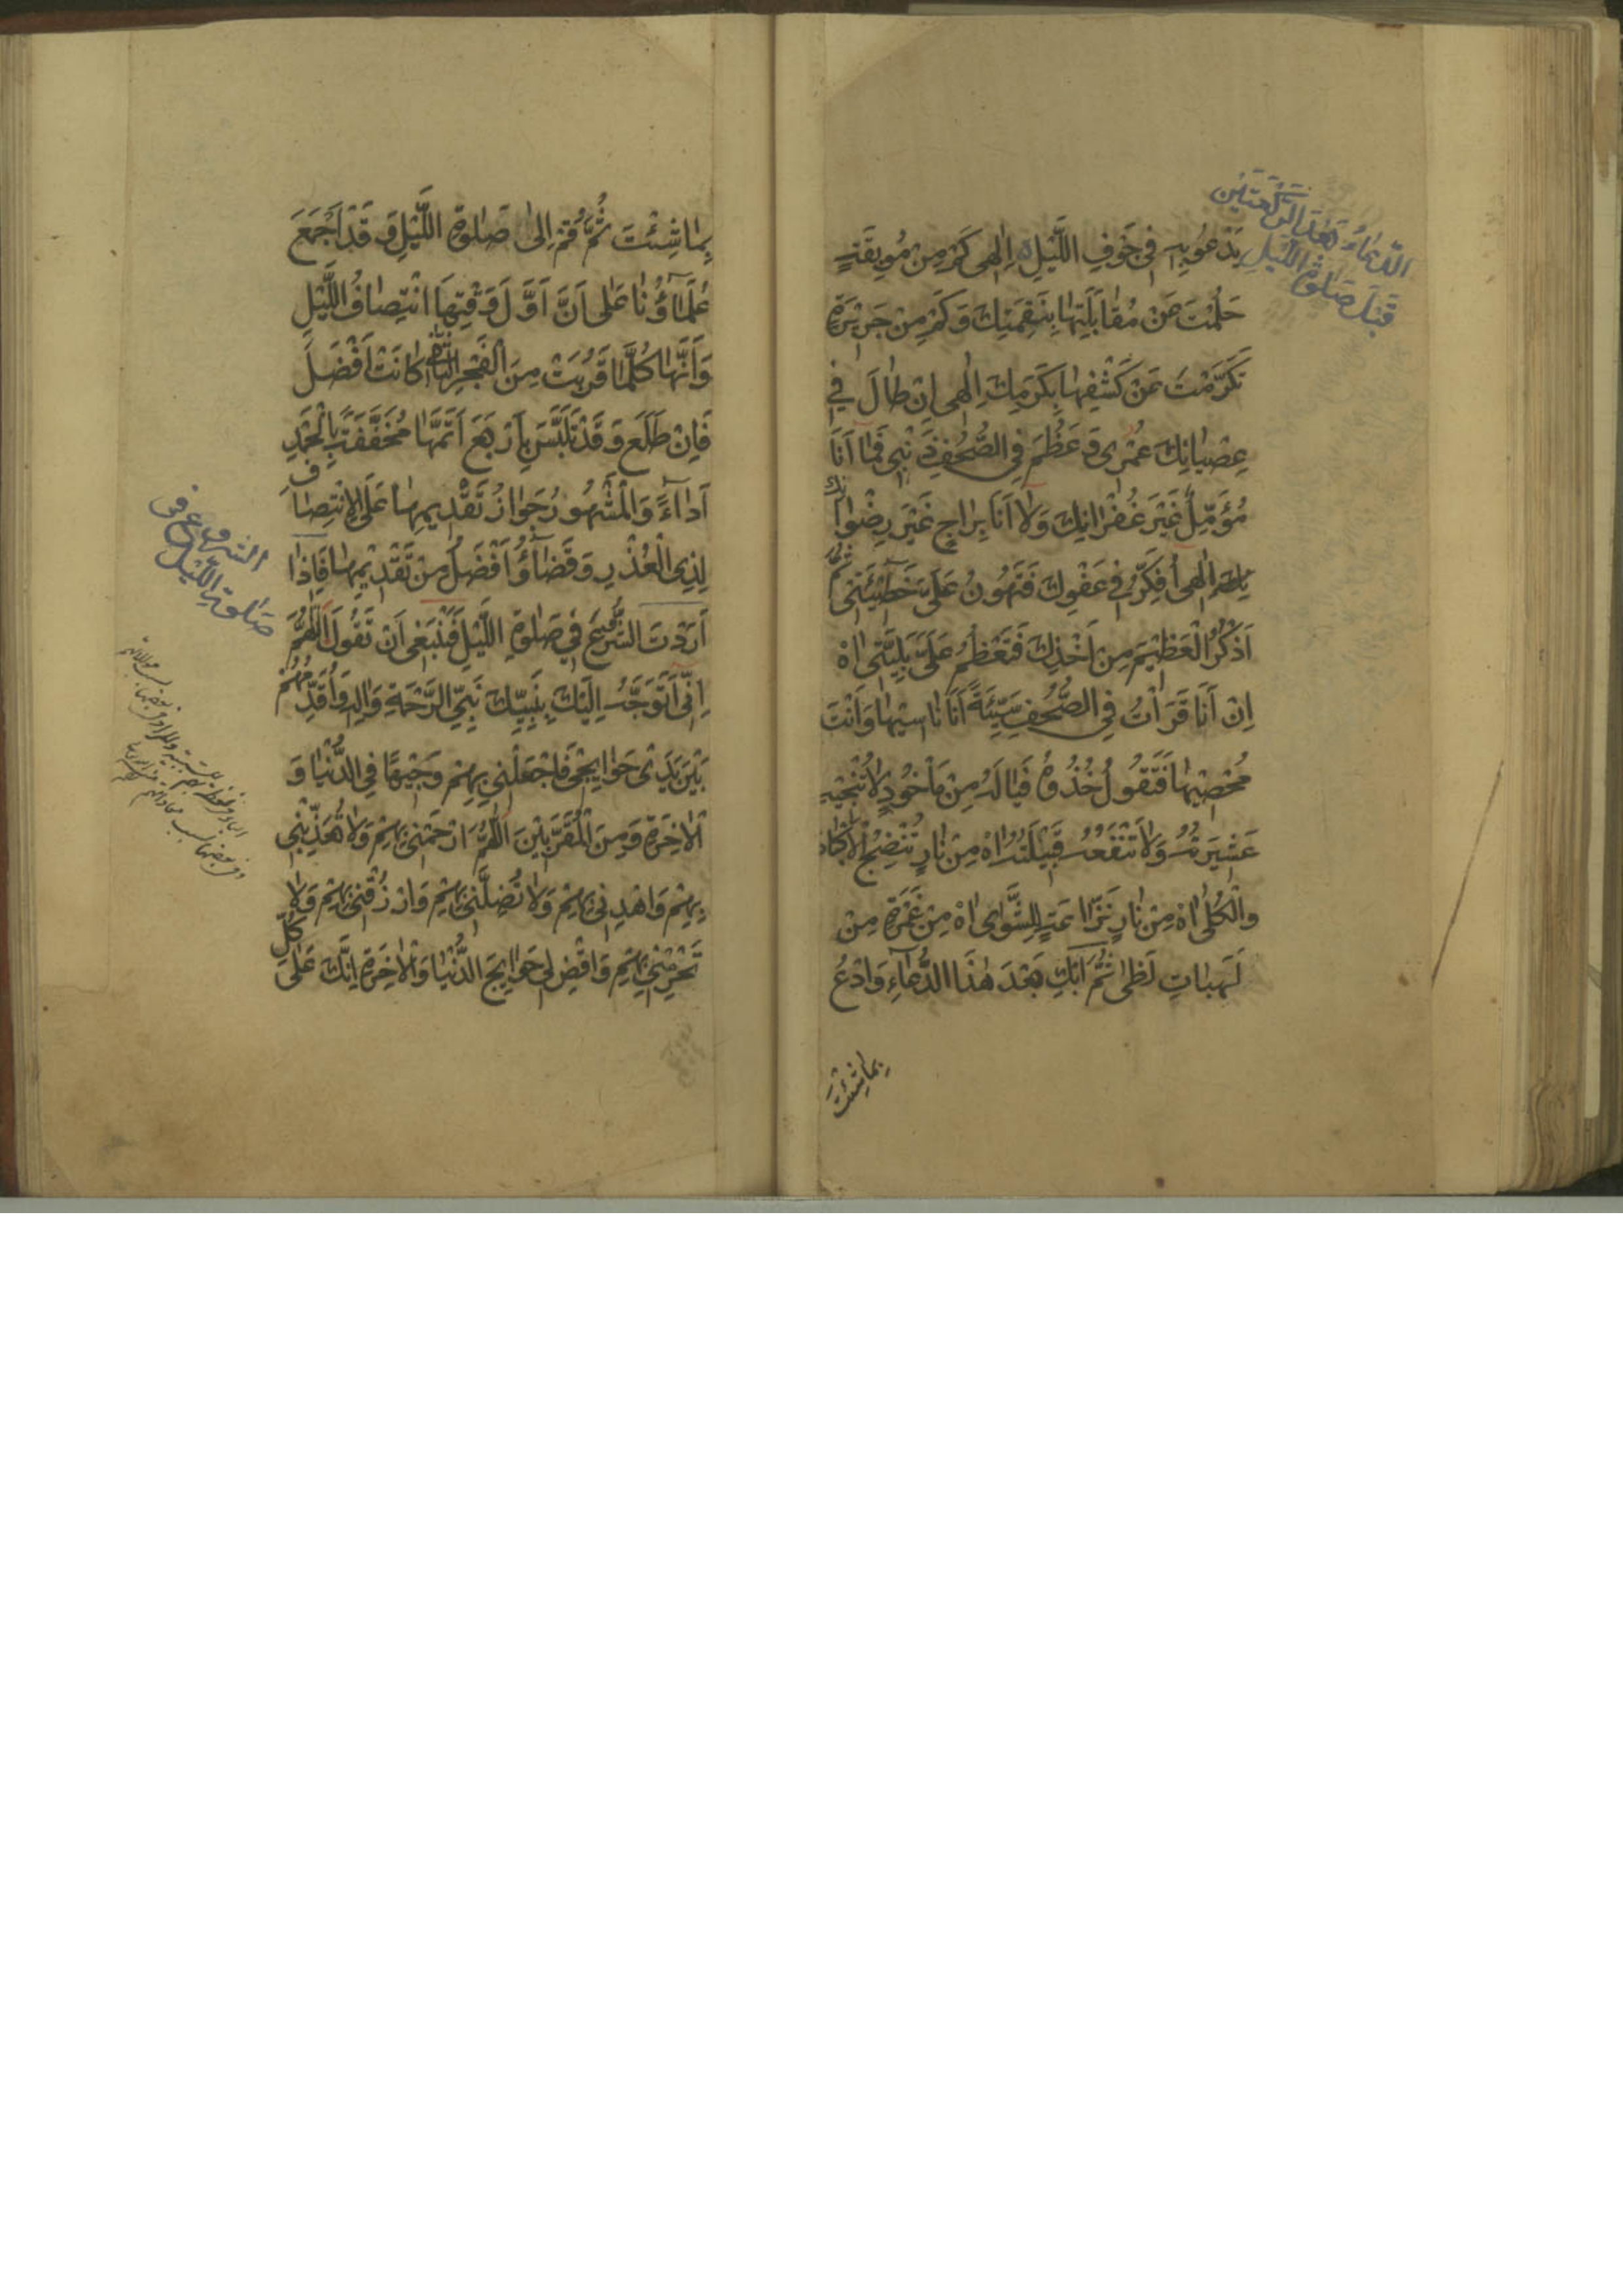 الدُّعَاءُ بَعْدَ الرَّكْعَتَيْنِ
قَبْلَ صَلٰوةِ اللَّيْلِ
يَدْعُو بِهِ فِي جَوْفِ اللَّيْلِ اِلٰهِي كَمْ مِنْ مُوبِقَةٍ
حَلُمْتَ عَنْ مُقَابَلَتِهَا بِنَقِمَتِكَ وَكَمْ مِنْ جَرِيْرَةٍ
تَكَرَّمْتَ عَنْ كَشْفِهَا بِكَرَمِكَ اِلٰهِي اِنْ طَالَ فِي
عِصْيَانِكَ عُمْرِي وَعَظُمَ فِي الصُّحُفِ ذَنْبِي فَمَا اَنَا
مُؤَمِّلٌ غَيْرَ غُفْرَانِكَ وَلَا اَنَا بِرَاجٍ غَيْرَ رِضْوَانِكَ
اِلٰهِي اُفَكِّرُ فِي عَفْوِكَ فَتَهُونُ عَلَيَّ خَطِيْئَتِي ثُمَّ
اَذْكُرُ الْعَظِيْمَ مِنْ اَخْذِكَ فَتَعْظُمُ عَلَيَّ بَلِيَّتِي اٰهْ
اِنْ اَنَا قَرَأْتُ فِي الصُّحُفِ سَيِّئَةً اَنَا نَاسِيْهَا وَاَنْتَ
مُحْصِيْهَا فَتَقُولُ خُذُوهُ فَيَالَهُ مِنْ مَأْخُوذٍ لَا تُنْجِيْهِ
عَشِيْرَتُهُ وَلَا تَنْفَعُهُ قَبِيْلَتُهُ اٰهْ مِنْ نَارٍ تُنْضِجُ الْاَكْبَادَ
وَالْكُلٰى اٰهْ مِنْ نَارٍ نَزَّاعَةٍ لِلشَّوٰى اٰهْ مِنْ غَمْرَةٍ مِنْ
لَهَبَاتِ لَظٰى ثُمَّ ابْكِ بَعْدَ هٰذَا الدُّعَاءِ وَادْعُ
بِمَا شِئْتَ
بِمَا شِئْتَ ثُمَّ قُمْ اِلٰى صَلٰوةِ اللَّيْلِ وَقَدْ اَجْمَعَ
عُلَمَاؤُنَا عَلٰى اَنَّ اَوَّلَ وَقْتِهَا انْتِصَافُ اللَّيْلِ
وَاَنَّهَا كُلَّمَا قَرُبَتْ مِنَ الْفَجْرِ الثَّانِي كَانَتْ اَفْضَلَ
فَاِنْ طَلَعَ وَقَدْ تَلَبَّسَ بِاَرْبَعَ اَتَمَّهَا مُخَفَّفَةً بِالْحَمْدِ
اَدَاءً وَالْمَشْهُورُ جَوَازُ تَقْدِيمِهَا عَلَى الْاِنْتِصَافِ
لِذِي الْعُذْرِ وَقَضَاؤُهَا اَفْضَلُ مِنْ تَقْدِيْمِهَا فَاِذَا
اَرَدْتَ الشُّرُوعَ فِي صَلٰوةِ اللَّيْلِ فَيَنْبَغِي اَنْ تَقُولَ اَللّٰهُمَّ
اِنِّي اَتَوَجَّهُ اِلَيْكَ بِنَبِيِّكَ نَبِيِّ الرَّحْمَةِ وَاٰلِهِ وَاُقَدِّمُهُمْ
بَيْنَ يَدَيْ حَوَايِجِي فَاجْعَلْنِي بِهِمْ وَجِيْهًا فِي الدُّنْيَا وَ
الْاٰخِرَةِ وَمِنَ الْمُقَرَّبِيْنَ اَللّٰهُمَّ ارْحَمْنِي بِهِمْ وَلَا تُعَذِّبْنِي
بِهِمْ وَاهْدِنِي بِهِمْ وَلَا تُضِلَّنِي بِهِمْ وَارْزُقْنِي بِهِمْ وَلَا
تَحْرِمْنِي بِهِمْ وَاقْضِ لِي حَوَايِجَ الدُّنْيَا وَالْاٰخِرَةِ اِنَّكَ عَلٰى كُلِّ
الشروع في
صَلٰوةِ اللَّيْلِ